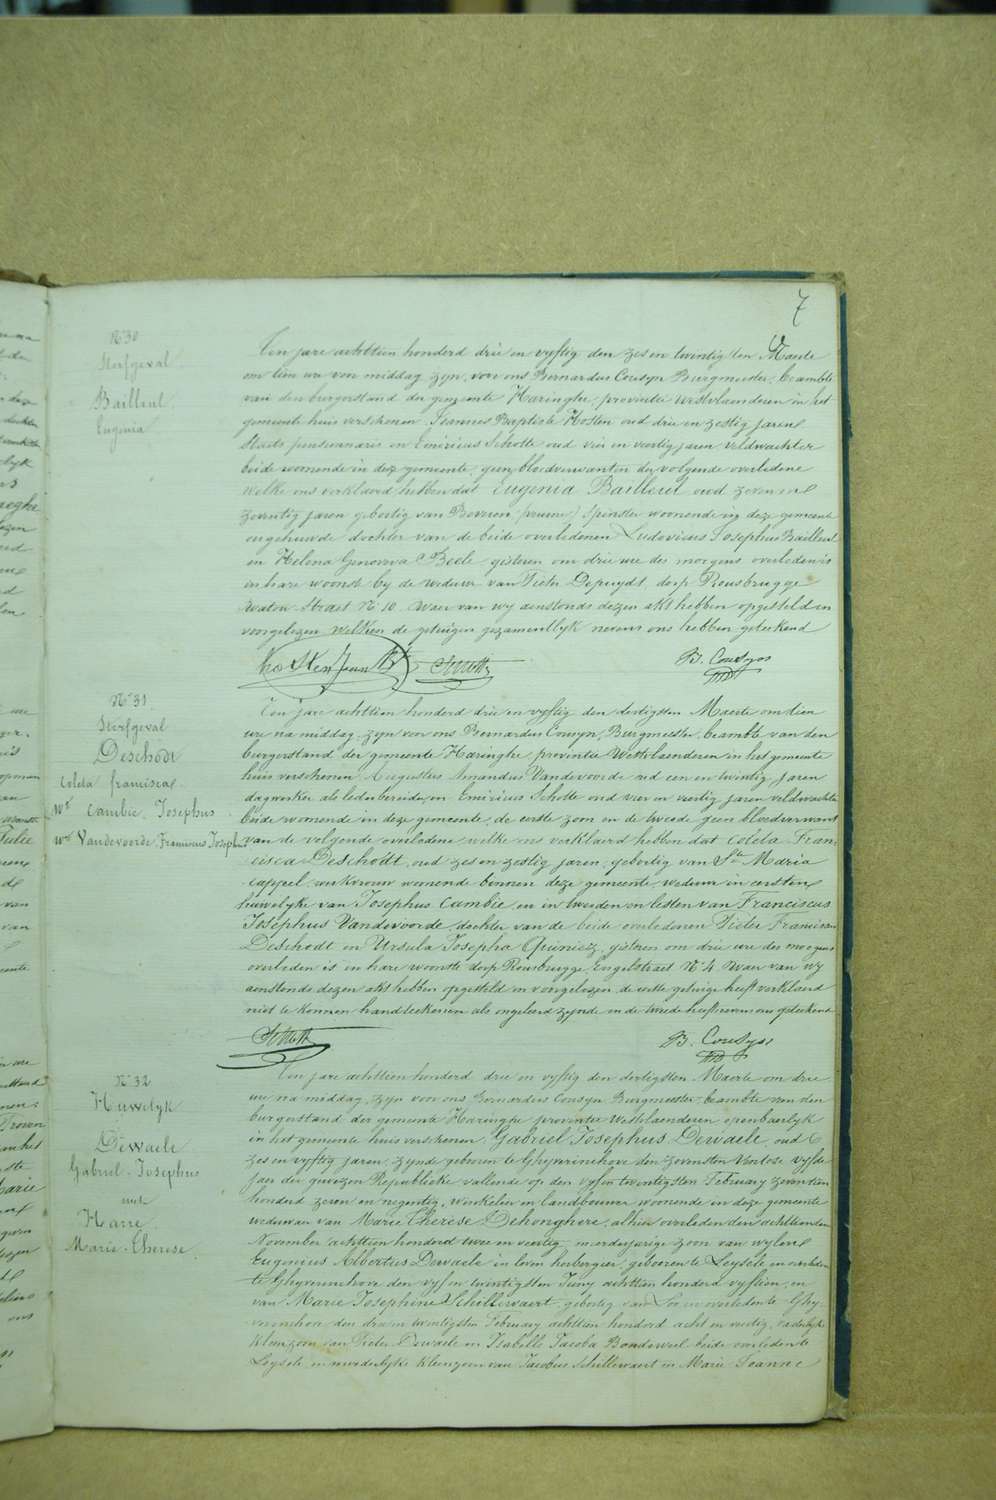 7
N° 30
Sterfgeval
Bailleul
Eugenia
Ten jare achttien honderd drie en vyftig den zes en twintigsten Maerte
om tien ure voor middag zyn, voor ons Bernardus Cousyn Burgmeester, beambte
van den burgerstand der gemeente Haringhe, provintie Westvlaenderen in het
gemeente huis verschenen Joannes Baptiste Hosten oud drie en zestig jaren
Staets pensionaris en Emiricus Schotte oud vier en veertig jaren veldwachter
beide woonende in deze gemeente, geen bloedverwanten der volgende overledene
welke ons verklaerd hebben dat Eugenia Bailleul oud zeven en
zeventig jaren gebortig van Beveren spinster woonende in deze gemeente
ongehuwde dochter van de beide overledenen Ludovicus Josephus Bailleul
en Helena Genoveva Beele gisteren om drie ure des morgens overleden is
in hare woonst by de weduwe van Pieter Depuydt, dorp Rousbrugge
Waton Straet N° 10. Waer van wy aenstonds dezen akt hebben opgesteld en
voorgelezen welken de getuigen gezamentlyk nevens ons hebben geteekend
Hosten Jean Bte Schotte B. Cousyn
N° 31
Sterfgeval
Deschodt
Coleta francisca
We Cambie Josephus
We Vandevoorde Franciscus Joseph
Ten Jare achttien honderd drie en vyftig den dertigsten Maerte om tien
ure na middag, zyn voor ons Bernardus Cousyn, Burgmeester, beambte van den
burgerstand der gemeente Haringhe provintie Westvlaenderen in het gemeente
huis verschenen Augustus Amandus Vandevoorde oud een en twintig jaren
dagwerker als lederbereider, en Emiricus Schotte oud vier en veertig jaren veldwachter
beide woonende in deze gemeente, de eerste zoon en de tweede geen bloedverwant
van de volgende overledene welke ons verklaerd hebben dat Coleta Fran
cisca Deschodt, oud zes en zestig jaren, gebortig van Ste Maria
Cappel, werkvrouw woonende binnen deze gemeente, weduwe in eersten
huwelyke van Josephus Cambie, en in tweeden en lesten van Franciscus
Josephus Vandevoorde, dochter van de beide overledenen Pieter Franciscus
Deschodt en Ursula Josepha Quiniez, gisteren om drie ure des morgens
overleden is in hare woonste dorp Rousbrugge Engelstraet N° 4 Waer van wy
aenstonds dezen akt hebben opgesteld en voorgelezen, de eerste getuige heeft verklaerd
niet te konnen handteekenen als ongeleerd zynde en de tweede heeft nevens ons geteekend
Schotte B. Cousyn
N° 32
Huwelyk
Dewaele
Gabriel Josephus
met
Harre
Marie Therese
Ten jare achttien honderd drie en vyftig den dertigsten Maerte om drie
ure na middag, zyn voor ons Bernardus Cousyn Burgmeester, beambte van den
burgerstand der gemeente Haringhe provintie Westvlaenderen openbaerlyk
in het gemeente huis verschenen, Gabriel Josephus Dewaele, oud
zes en vyftig jaren, zynde geboren te Ghyverinchove den zevensten Ventose vyfde
jaer der gewezen Republieke vallende op den vyf en twintigsten February zeventien
honderd zeven en negentig, winkelier en landbouwer woonende in deze gemeente
weduwaer van Marie Therese Dehonghere, alhier overleden den achttienden
November achttien honderd twee en veertig, meerderjarige zoon van wylent
Eugenius Albertus Dewaele in leven herbergier, geboren te Leysele en overleden
te Ghyverinchove den vyf en twintigsten Juny achttien honderd vyftien, en
van Marie Josephine Schillewaert, gebortig van Loo en overleden te Ghy-
verinchove den drie en twintigsten February achttien honderd acht en veertig, vaderlyke
kleinzoon van Pieter Dewaele en Isabelle Jacoba Bondewel beide overleden te
Leysele en moederlyke kleinzoon van Jacobus Schillewaert en Marie Joanne